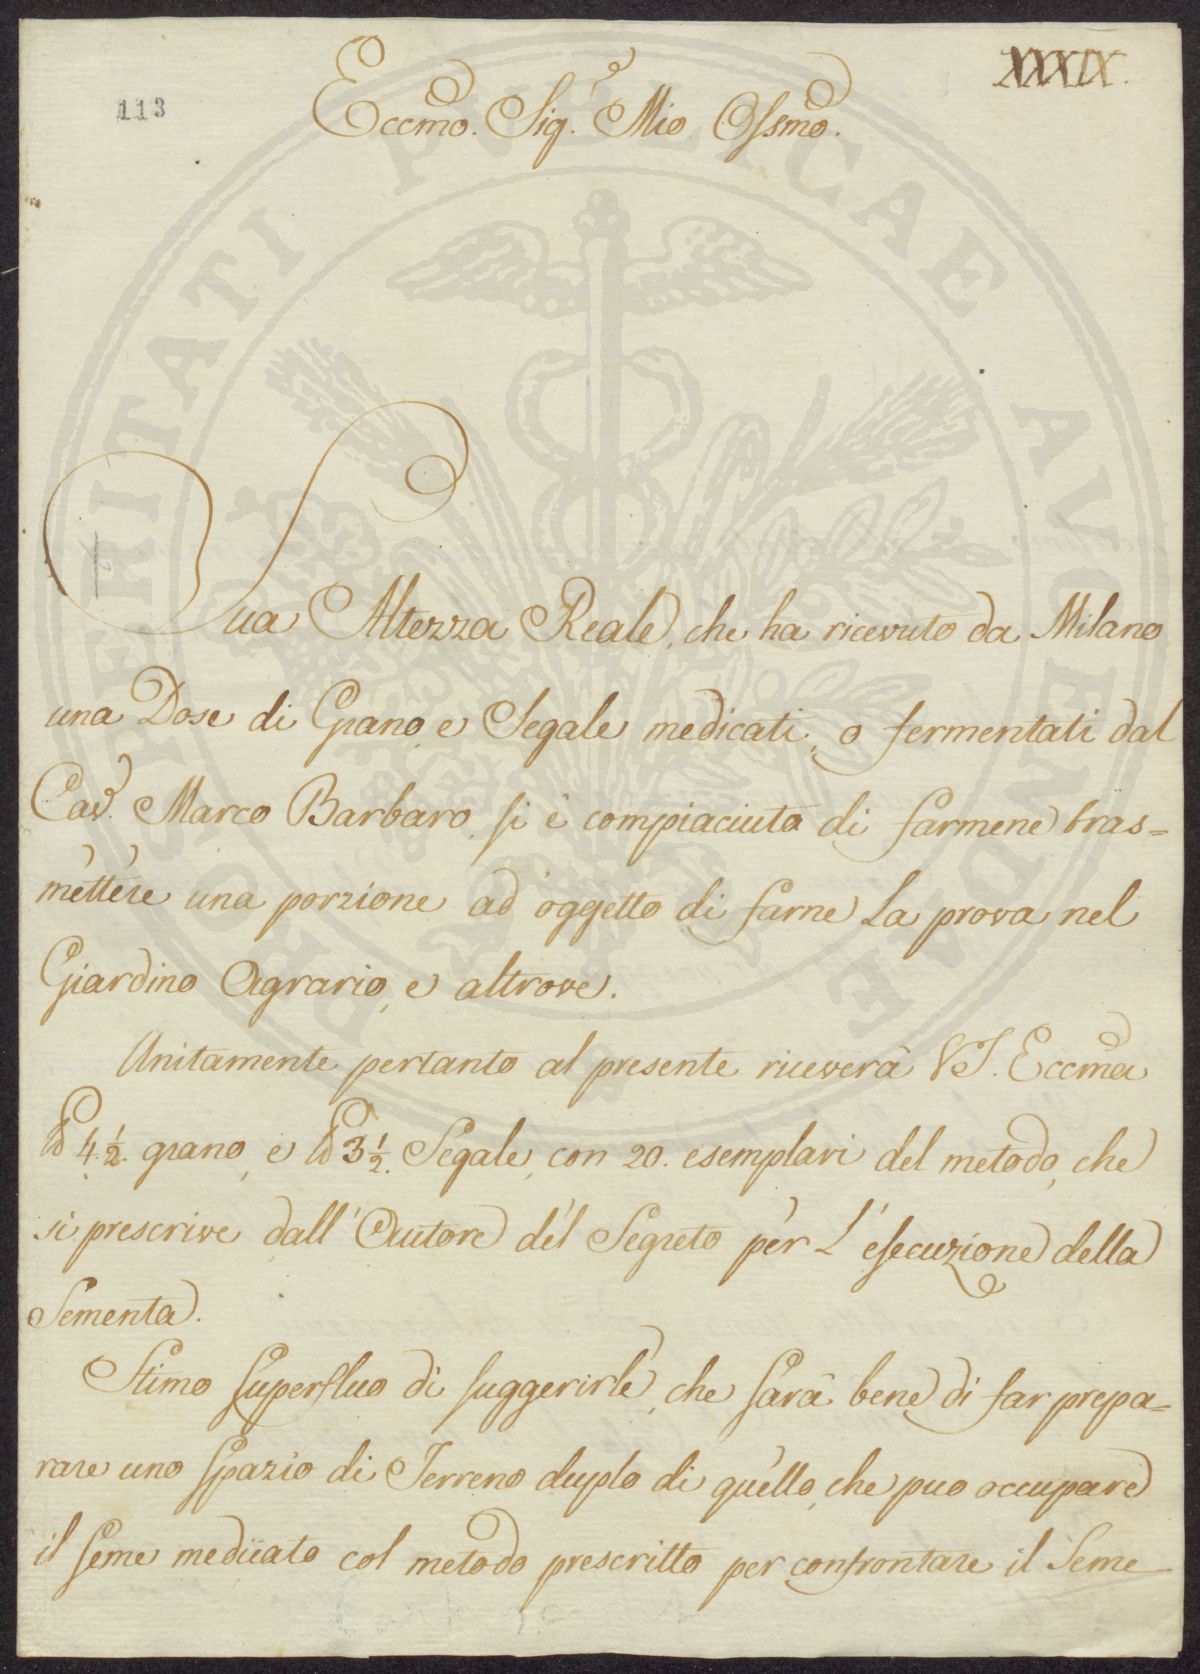 XXXIX.
113
Eccmo. Sig.e Mio Ossmo.
Sua Altezza Reale, che ha ricevuto da Milano
una Dose di Grano, e Segale medicati, o fermentati dal
Cav.e Marco Barbaro, si è compiaciuta di farmene tras=
mettere una porzione ad oggetto di farne la prova nel
Giardino Agrario, e altrove.
Unitamente pertanto al presente riceverà VS. Eccma
lb 4. 1/2. grano, e lb 3 1/2. Segale, con 20. esemplari del metodo, che
si prescrive dall'Autore del Segreto per l'esecuzione della
Sementa.
Stimo superfluo di suggerirle, che sarà bene di far prepa=
rare uno spazio di Terreno duplo di quello, che puo occupare
il seme medicato col metodo prescritto per confrontare il Seme
PROSPERITATI PVBLICAE AVGENDAE